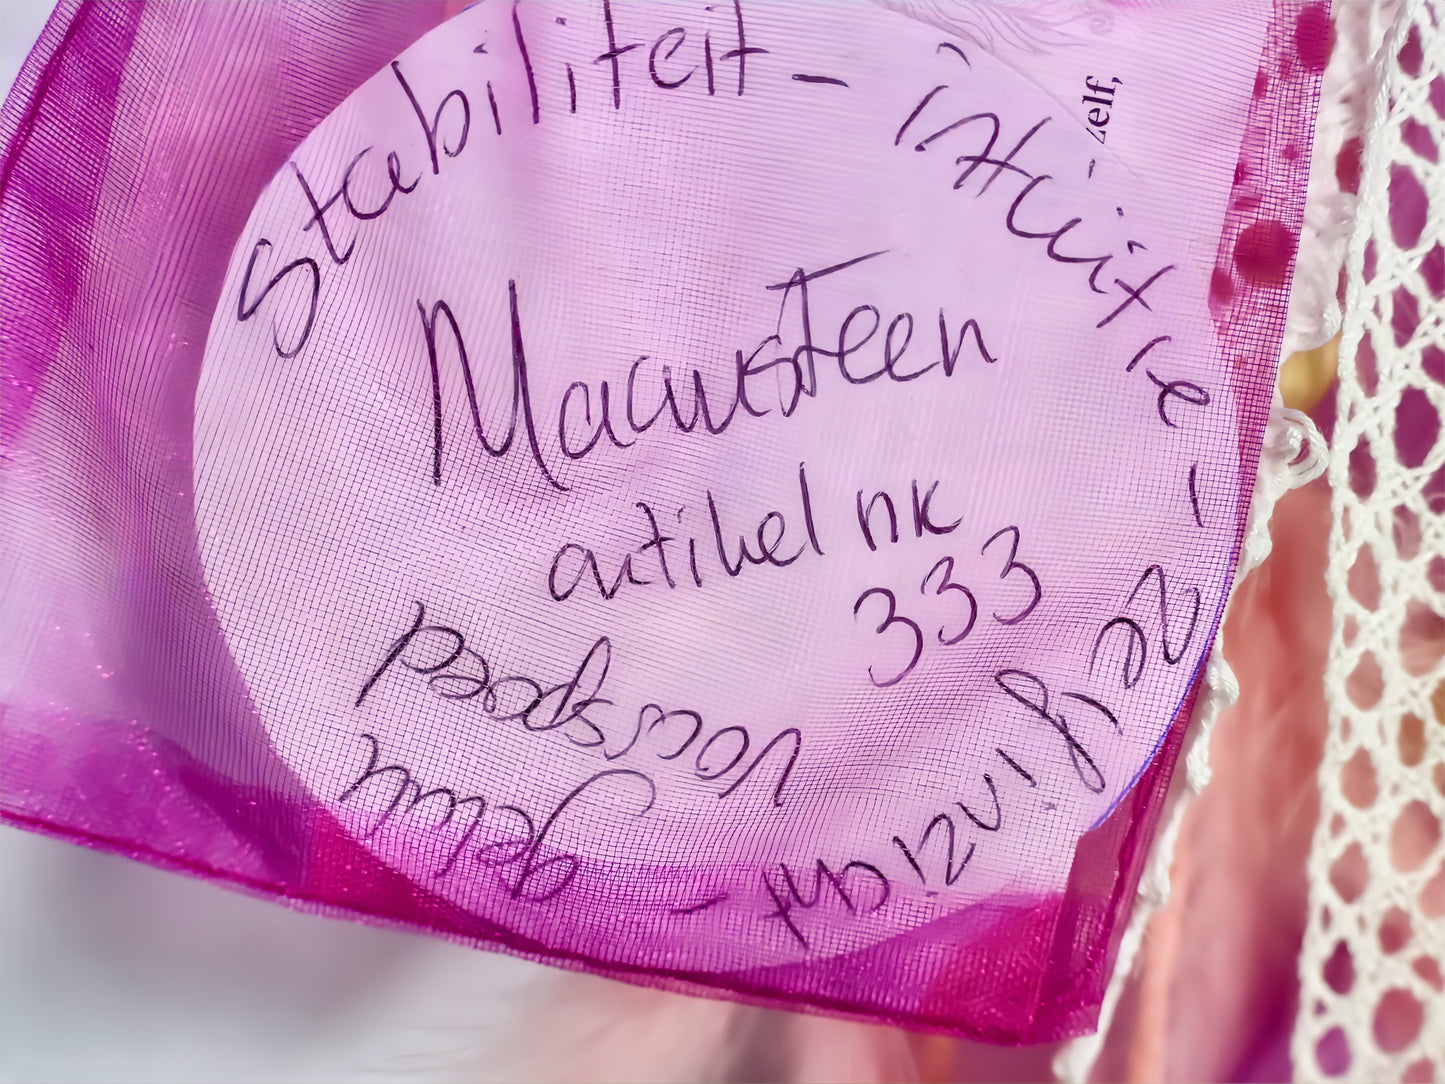 Stabiliteit - intuïtie - zelfinzicht - geluk
voorspoed
Maansteen
artikel nr
333
- zelf,